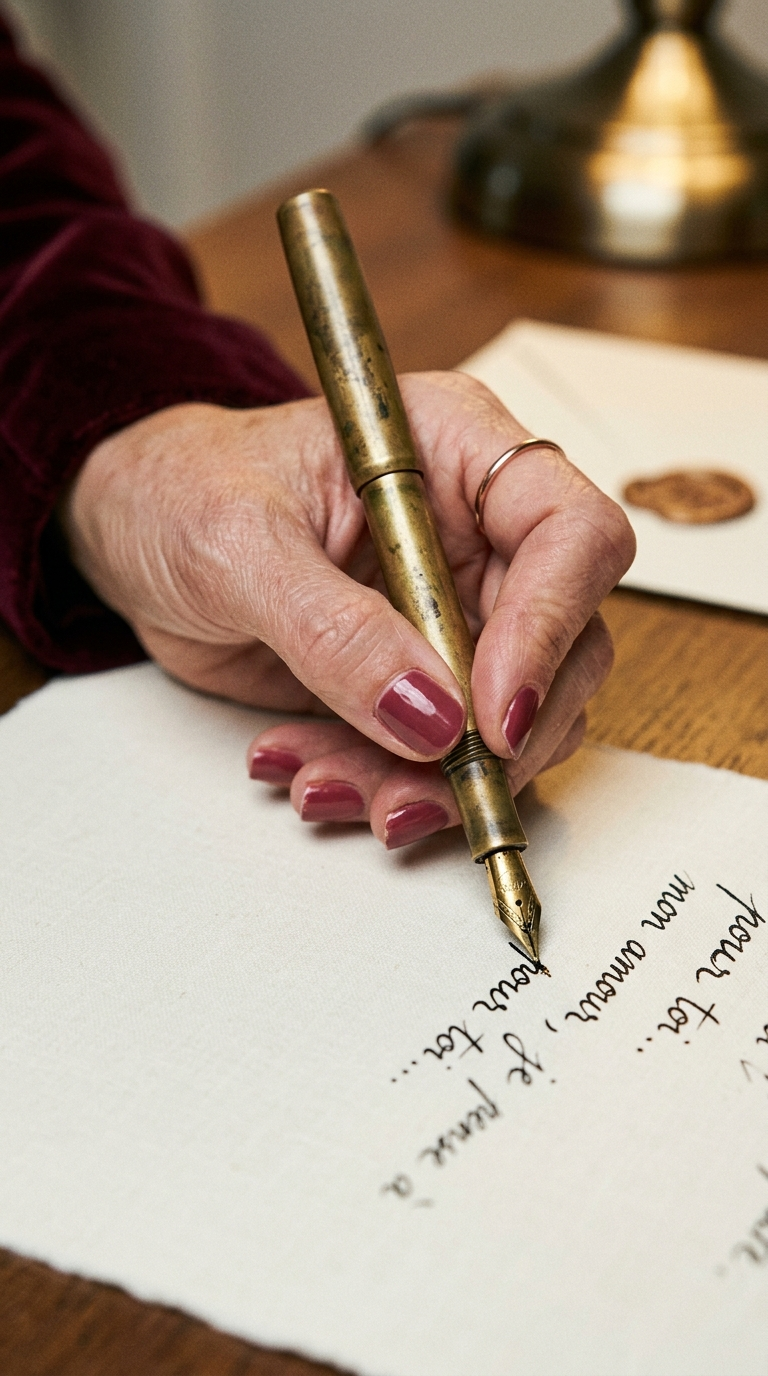 pour toi..
mon amour, je pense à
pour toi...